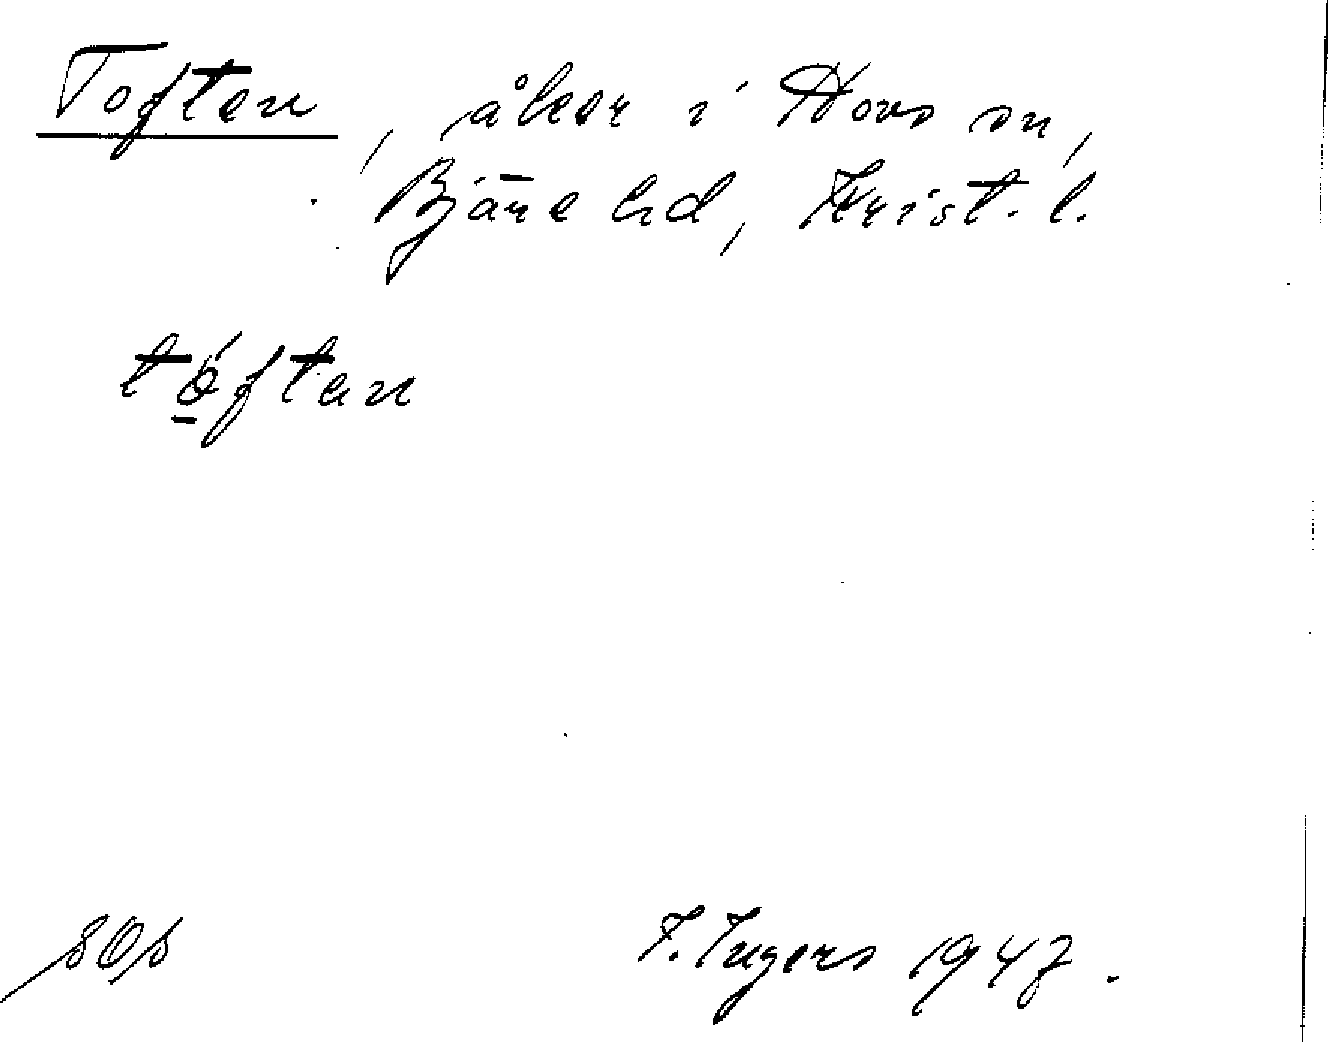 Toften, åker i Hovs sn,
Bjäre hd, Krist. l.
tǫ́ften
I. Ingers 1947.